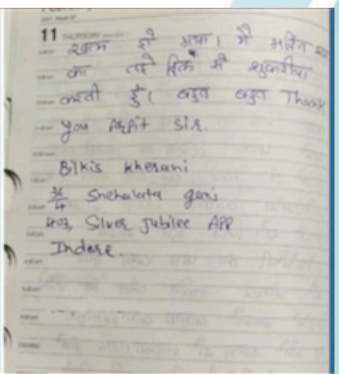 11 THURSDAY
खत्म हो गया। मैं अर्पित सर
का तहे दिल से शुक्रीया
करती हूँ। बहुत बहुत Thank
you Arpit Sir.
Bilkis Kherani
Snehalata ganj
Silver Jubilee APP
Indore